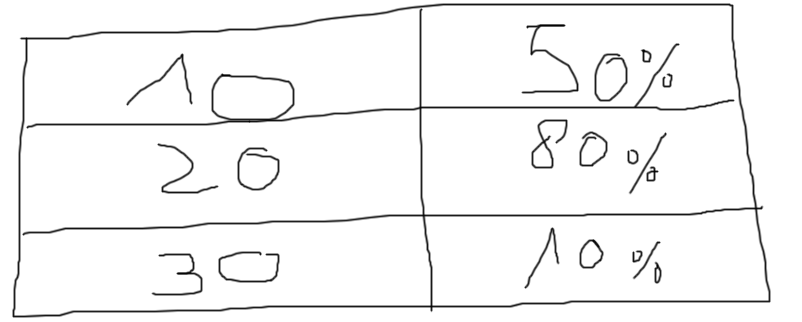 10 50%
20 80%
30 10%